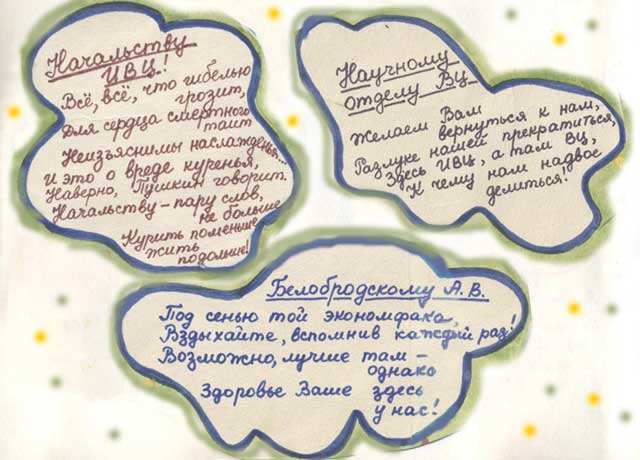 Начальству
ИВЦ!
Всё, всё, что гибелью
грозит,
Для сердца смертного
таит
Неизъяснимы наслажденья...
И это о вреде куренья,
Наверно, Пушкин говорит.
Начальству – пару слов,
не больше
Курить поменьше,
жить
подольше!
Научному
отделу ВЦ
Желаем Вам
вернуться к нам,
Разлуке нашей прекратиться,
Здесь ИВЦ, а там ВЦ,
К чему нам надвое
делиться!
Белобродскому А.В.
Под сенью той экономфака,
Вздыхайте, вспомнив каждый раз:
Возможно, лучше там –
однако
Здоровье Ваше здесь
у нас!